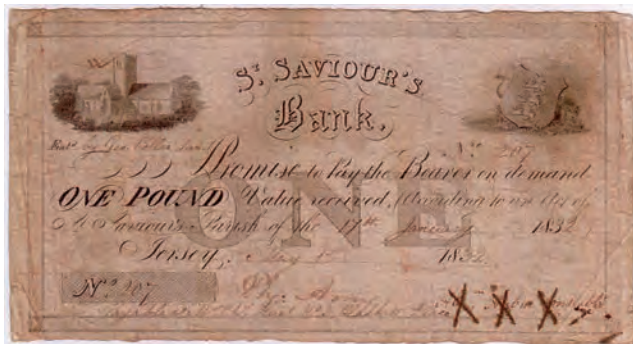 St. SAVIOUR'S
Bank.
No. 207
Promise to Pay the Bearer on demand
ONE POUND Value received, According to an Act of
St. Saviour's Parish of the 17th January 1832
ONE
Jersey, May 1832
No. 207
X X X